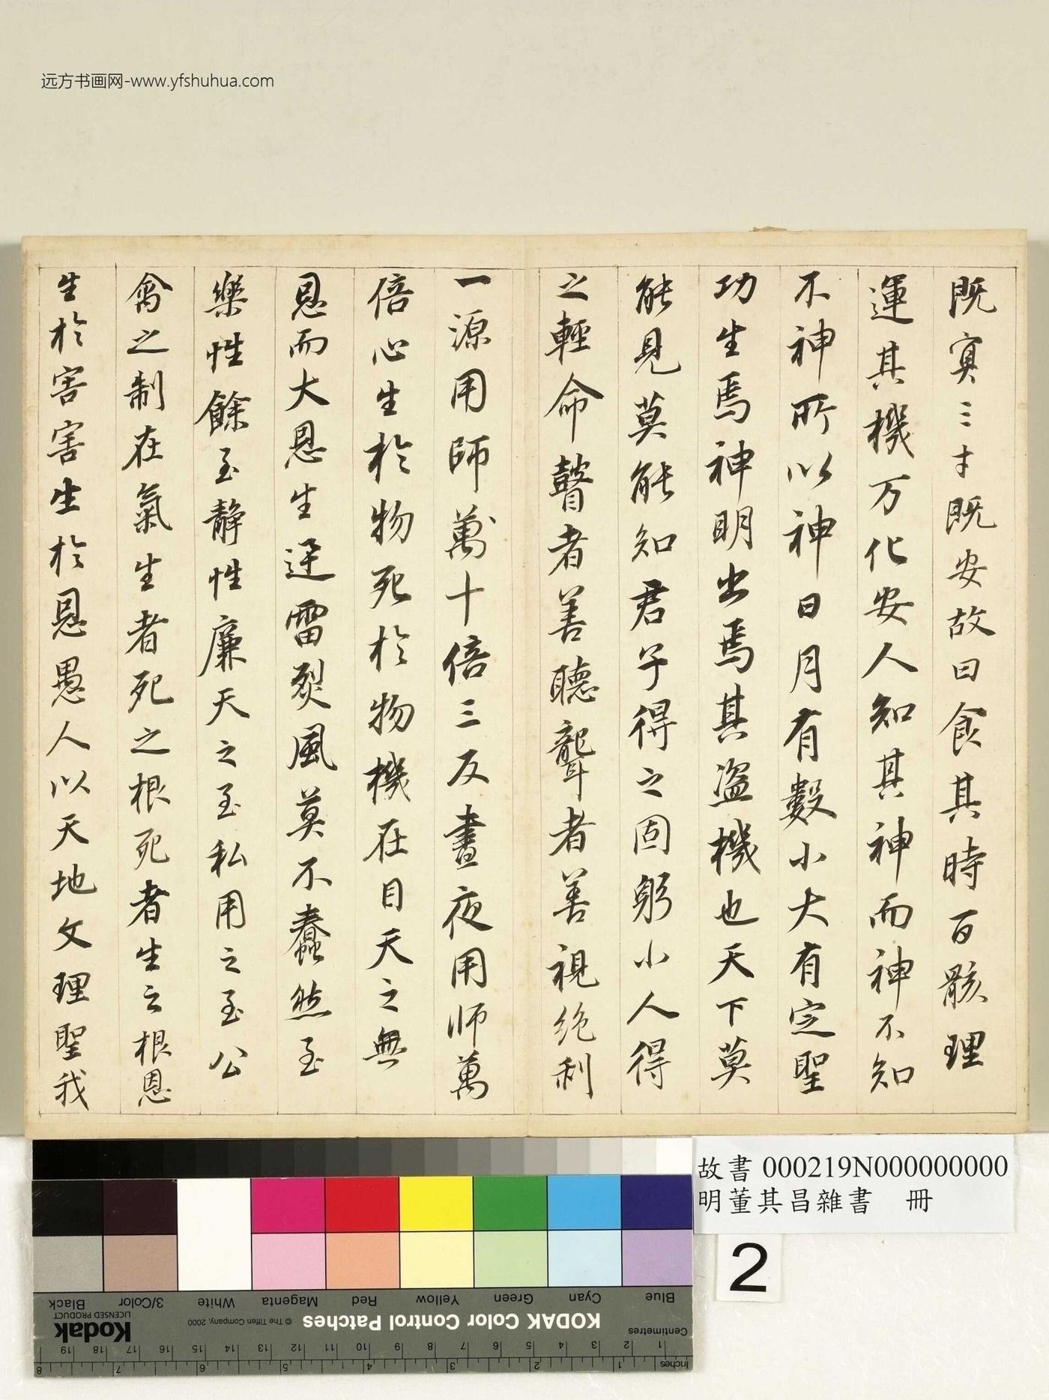 远方书画网-www.yfshuhua.com
既寘三才既安故曰食其時百骸理
運其機万化安人知其神而神不知
不神所以神日月有數小大有定聖
功生焉神明出焉其盜機也天下莫
能見莫能知君子得之固躬小人得
之輕命瞽者善聽聾者善視絶利
一源用師萬十倍三反晝夜用師萬
倍心生於物死於物機在目天之無
恩而大恩生迅雷烈風莫不蠢然至
樂性餘至静性廉天之至私用之至公
禽之制在氣生者死之根死者生之根恩
生於害害生於恩愚人以天地文理聖我
故書 000219N000000000
明董其昌雜書 冊
2
Blue
Cyan
Green
Yellow
Red
Magenta
White
3/Color
Black
KODAK Color Control Patches
© The Tiffen Company, 2000
Kodak
LICENSED PRODUCT
Centimetres
1 2 3 4 5 6 7 8 9 10 11 12 13 14 15 16 17 18 19
Inches
1 2 3 4 5 6 7 8